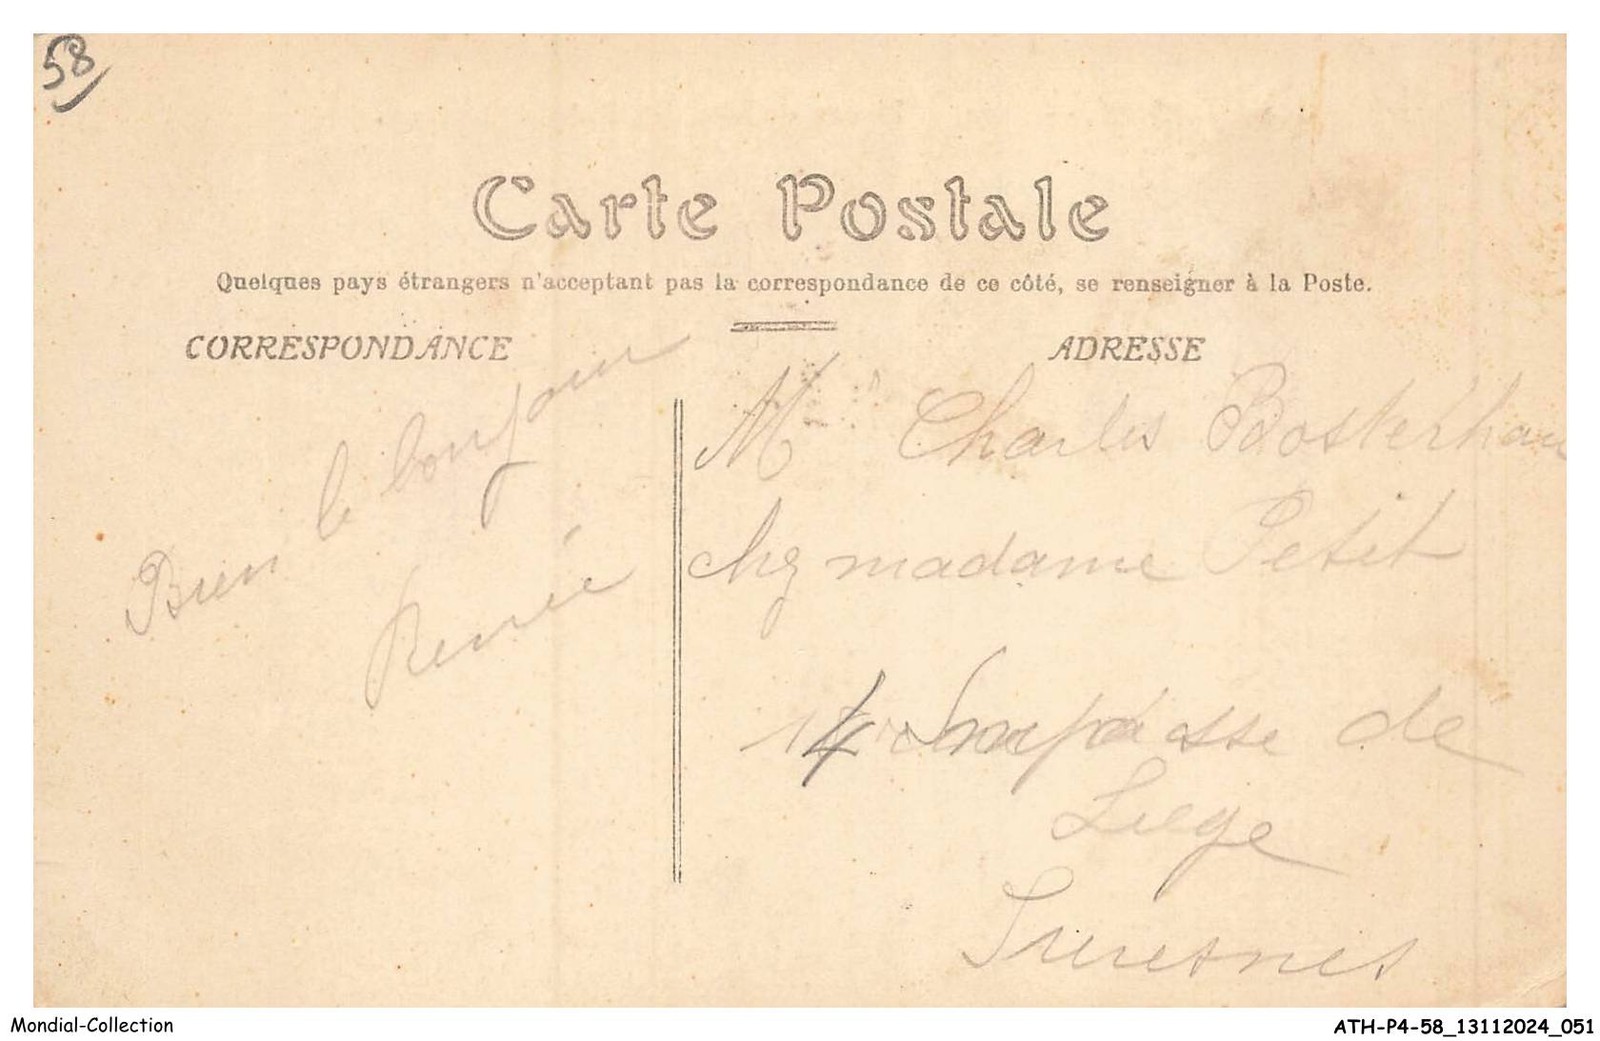 58
Carte Postale
Quelques pays étrangers n'acceptant pas la correspondance de ce côté, se renseigner à la Poste.
CORRESPONDANCE
ADRESSE
Bien le bonjour
Renée
Mr Charles
chez madame Petit
14 Impasse de
Liege
Suresnes
Mondial-Collection
ATH-P4-58_13112024_051